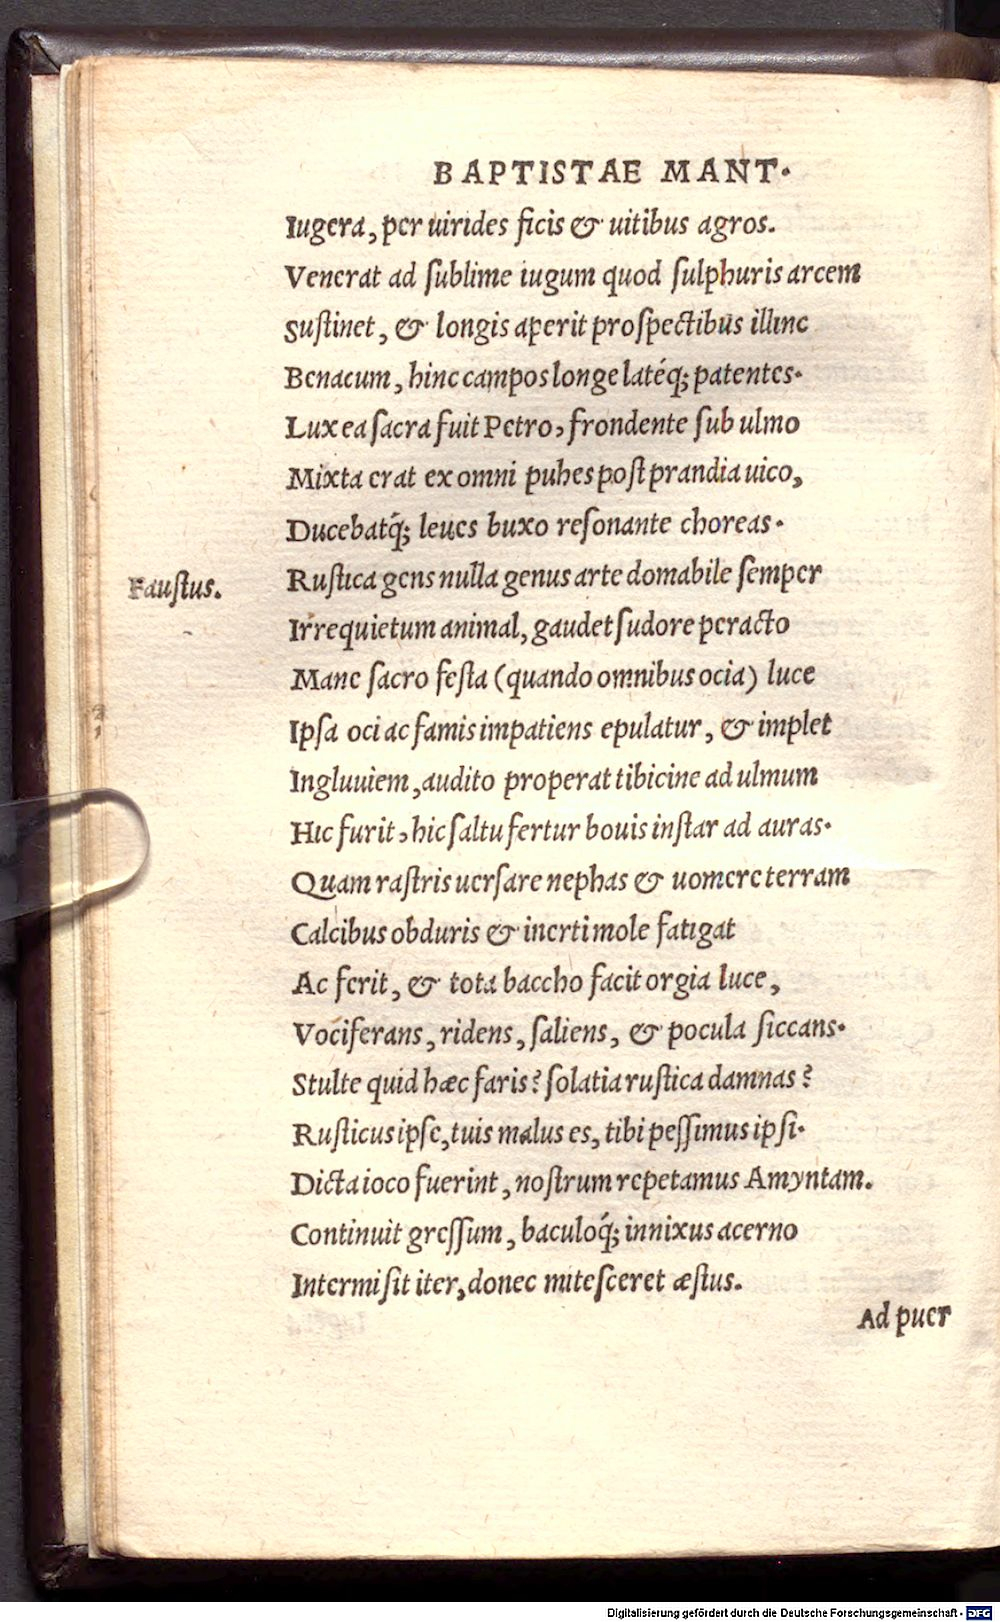 BAPTISTAE MANT.
Iugera, per uirides ficis & uitibus agros.
Venerat ad ſublime iugum quod ſulphuris arcem
Suſtinet, & longis aperit proſpectibus illinc
Benacum, hinc campos longe latéq; patentes.
Lux ea ſacra fuit Petro, frondente ſub ulmo
Mixta erat ex omni pubes poſt prandia uico,
Ducebatq́; leues buxo reſonante choreas.
Fauſtus.
Ruſtica gens nulla genus arte domabile ſemper
Irrequietum animal, gaudet ſudore peracto
Mane ſacro feſta (quando omnibus ocia) luce
Ipſa oci ac famis impatiens epulatur, & implet
Ingluuiem, audito properat tibicine ad ulmum
Hic furit, hic ſaltu fertur bouis inſtar ad auras.
Quam raſtris uerſare nephas & uomere terram
Calcibus obduris & inerti mole fatigat
Ac ferit, & tota baccho facit orgia luce,
Vociferans, ridens, ſaliens, & pocula ſiccans.
Stulte quid hæc faris? ſolatia ruſtica damnas?
Ruſticus ipſe, tuis malus es, tibi peſſimus ipſi.
Dicta ioco fuerint, noſtrum repetamus Amyntam.
Continuit greſſum, baculoq́; innixus acerno
Intermiſit iter, donec miteſceret æſtus.
Ad puer
Digitalisierung gefördert durch die Deutsche Forschungsgemeinschaft - DFG